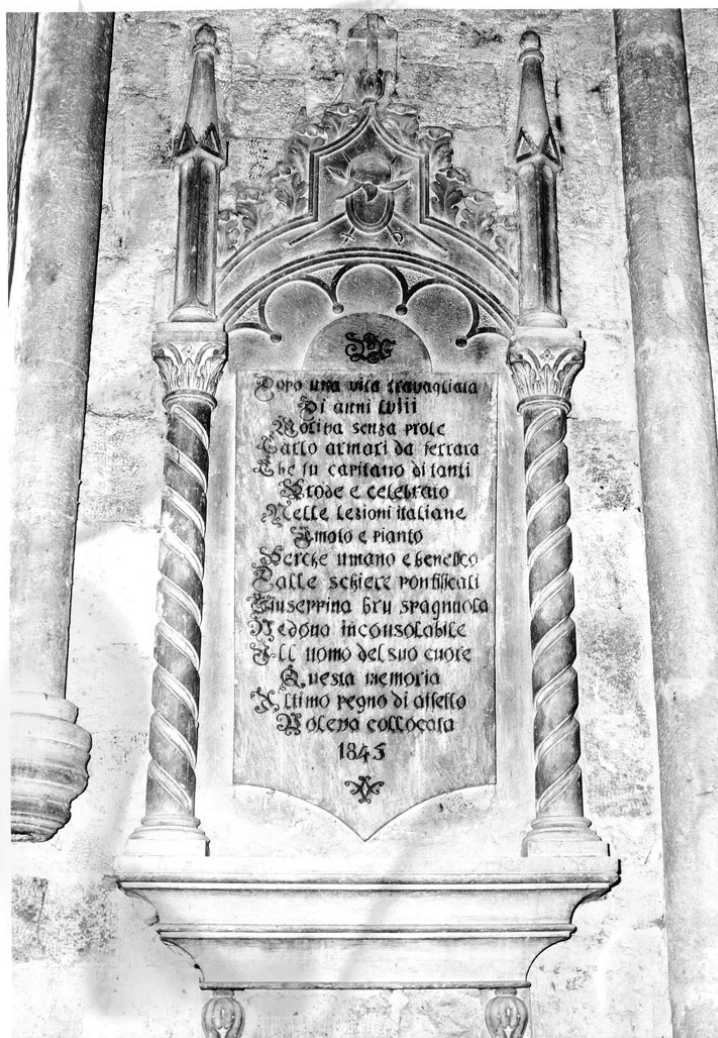 Dopo una vita travagliata
Di anni LVIII
Moriva senza prole
Carlo armari da ferrara
Che fu capitano di tanti
Prode e celebrato
Nelle Lezioni italiane
Amato e pianto
Perche umano e benefico
Dalle schiere pontificali
Giuseppina Bru spagnuola
Vedova inconsolabile
All uomo del suo cuore
Questa memoria
Ultimo pegno di affetto
Voleva collocata
1845